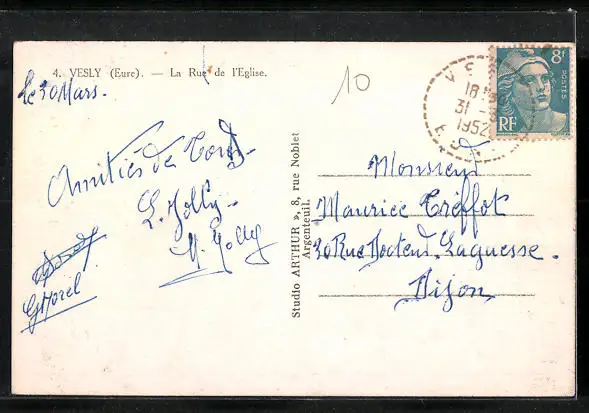 4. VESLY (Eure). — La Rue de l'Eglise.
le 30 Mars.
10
Amitiés de Tous.
L. Jolly.
M. Jolly
G Morel
Studio ARTHUR », 8, rue Noblet
Argenteuil.
VE
18 H
31 -3
1952
E
8F
POSTES
RF
Monsieur
Maurice Tréffot
30 Rue Docteur Laguesse.
Dijon